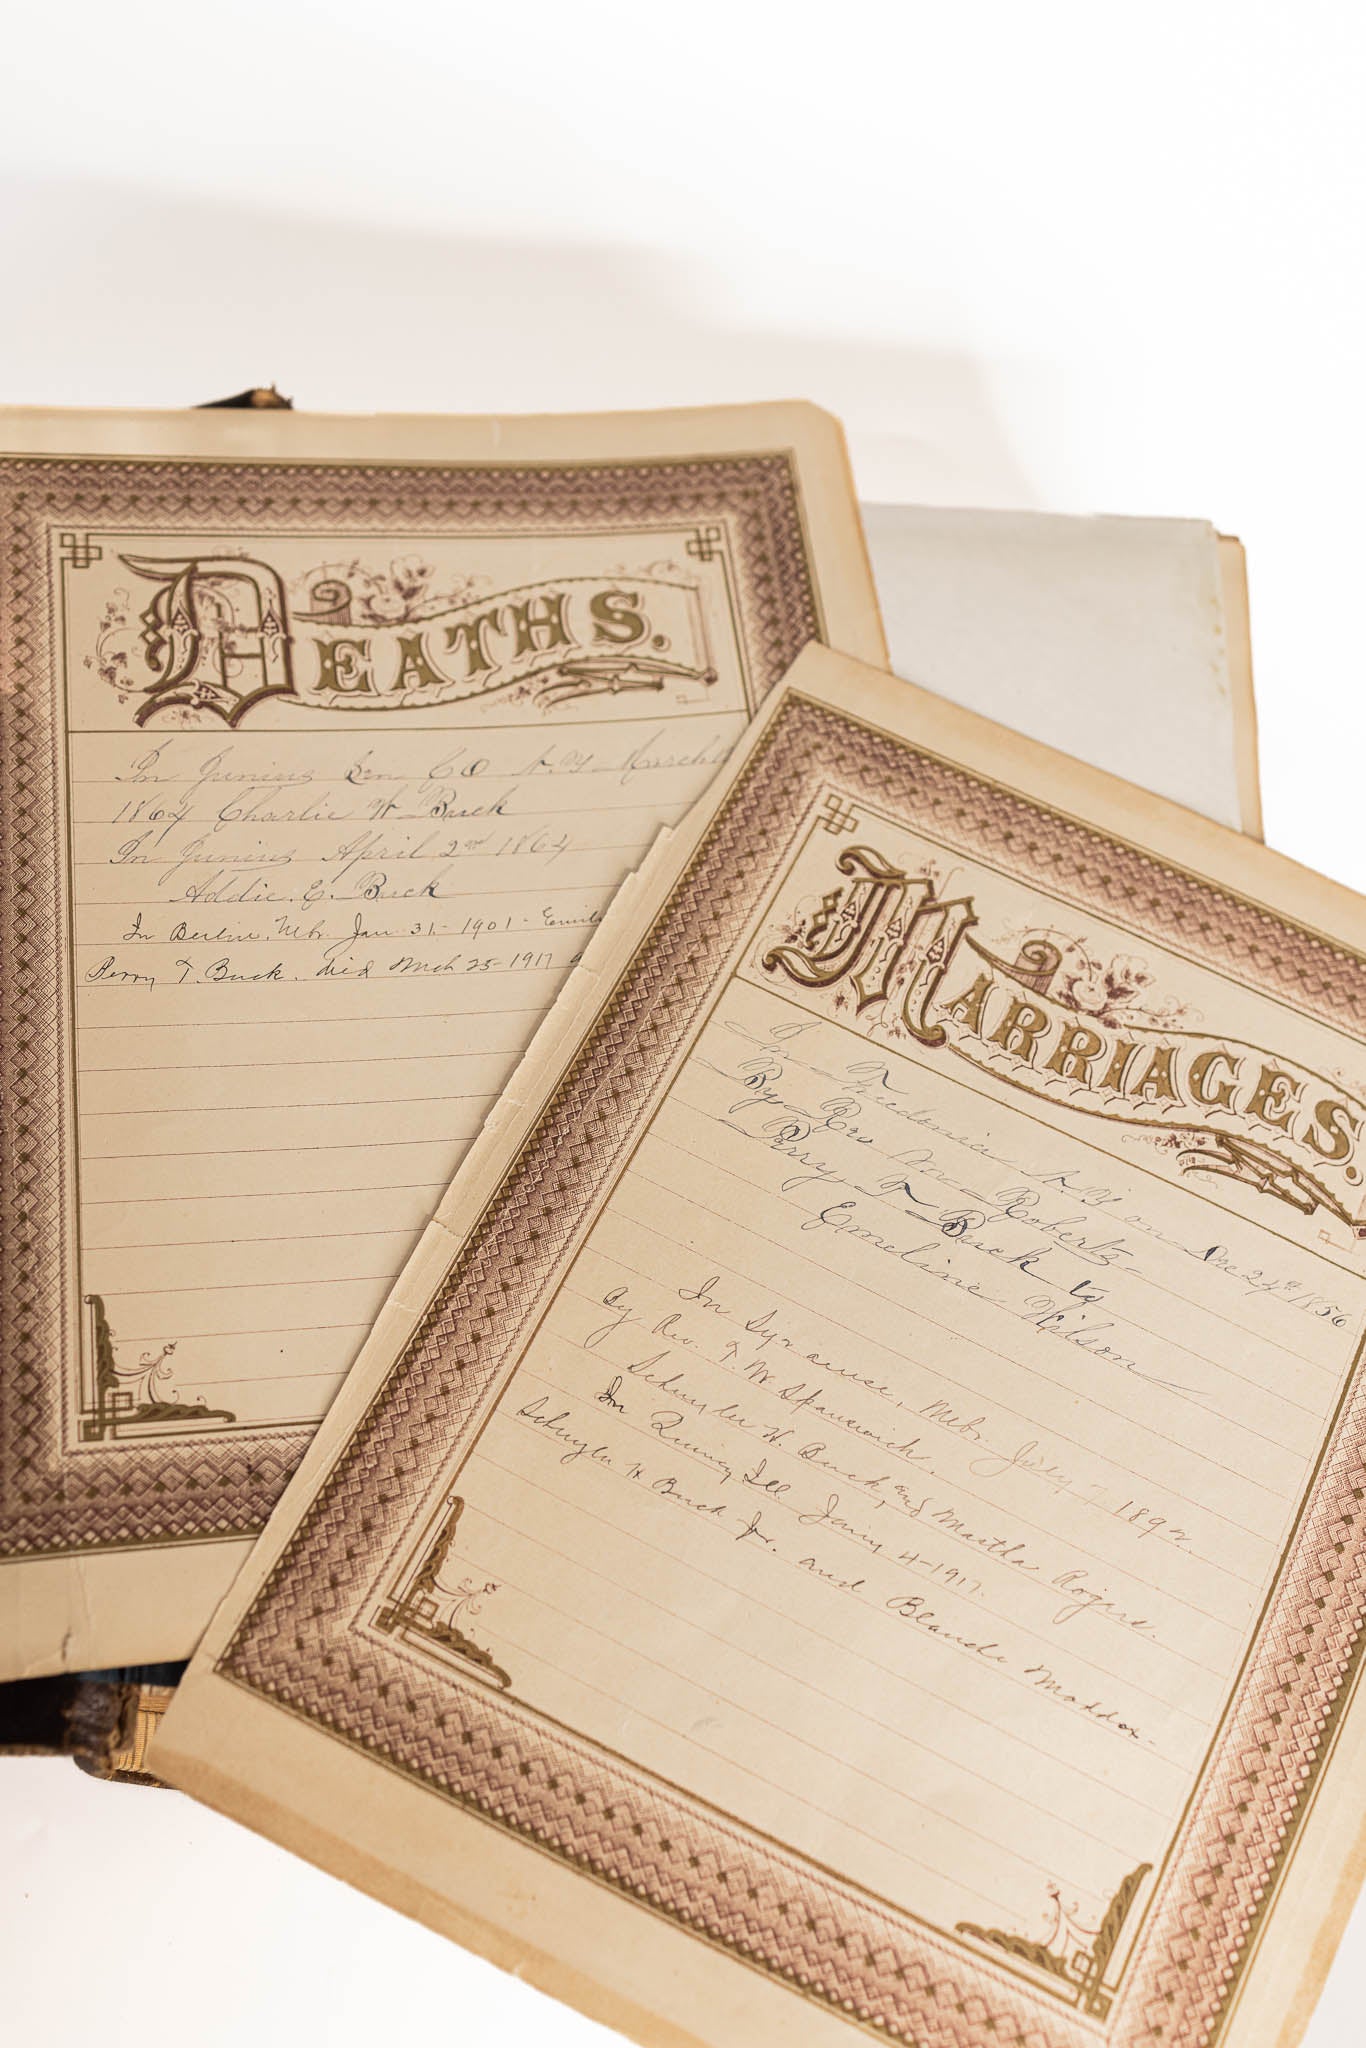 DEATHS.
In Junius Sen CO N.Y. March
1864 Charlie W Buck
In Junius April 2nd 1864
Addie. E. Buck
In Berlin, Nbr. Jan 31,-1901-
Perry T. Buck. died Mch 25-1917
MARRIAGES.
In Fredonia N.Y on Dec 24th 1856
By Rev Wm Roberts
Perry T Buck to
Emeline Wilson
In Syracuse, Nbr. July 1892.
By Rev. T. W.
Schuyler H. Buck, and Martha
In Quincy Ill 4-1917.
Schuyler H Buck Jr. and Blanche Maddox-